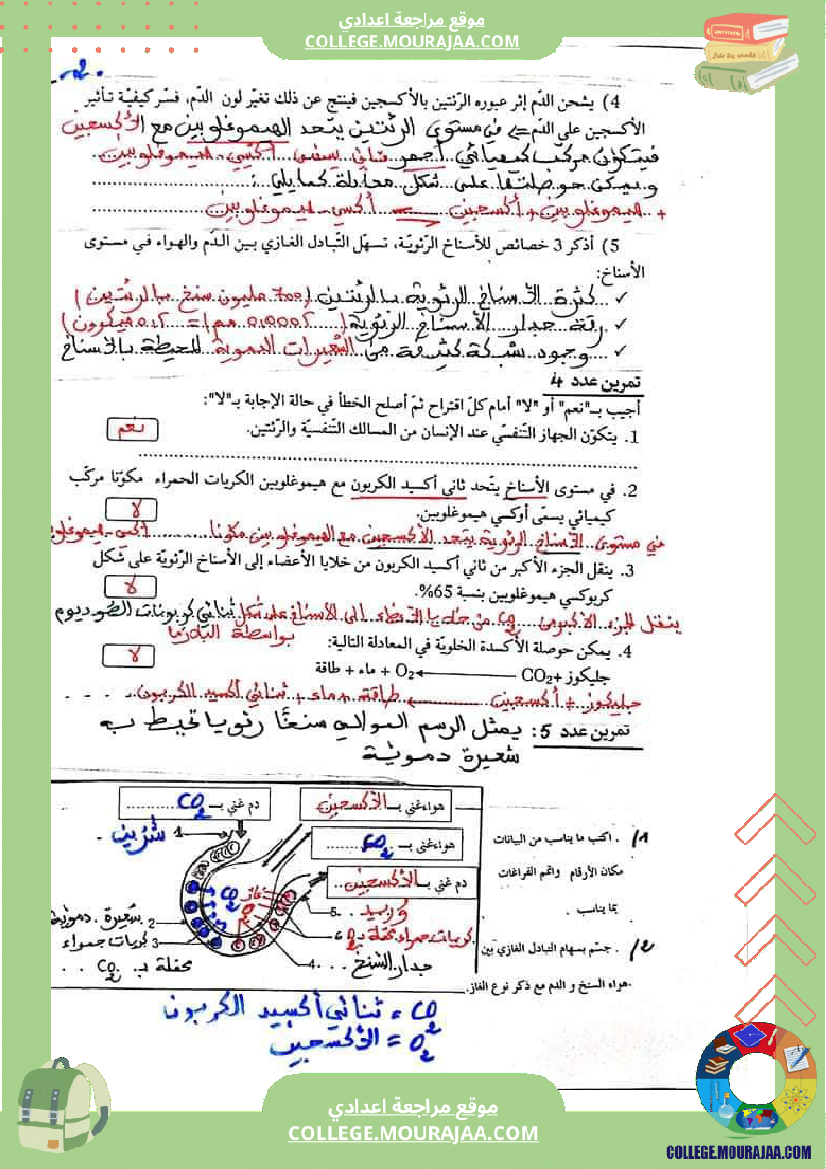 موقع مراجعة اعدادي
COLLEGE.MOURAJAA.COM
4) يشحن الدّم إثر عبوره الرّئتين بالأكسجين فينتج عن ذلك تغيّر لون الدّم، فسّر كيفيّة تأثير
الأكسجين على الدّم. في مستوى الرئتين يتحد الهيموغلوبين مع الأكسجين
فيتكون مركب كيميائي أحمر قاني يسمى أكسي-هيموغلوبين
ويمكن حوصلتها على شكل معادلة كما يلي:
هيموغلوبين + أكسجين ← أكسي-هيموغلوبين
5) أذكر 3 خصائص للأسناخ الرّئويّة، تسهّل التّبادل الغازي بين الدّم والهواء في مستوى
الأسناخ:
✓ كثرة الأسناخ الرئوية بالرئتين (700 مليون سنخ بالرئتين)
✓ رقة جدار الأسناخ الرئوية (0.0002 مم) = 0.2 ميكرون)
✓ وجود شبكة كثيفة من الشعيرات الدموية المحيطة بالأسناخ
تمرين عدد 4
أجيب بـ"نعم" أو "لا" أمام كلّ اقتراح ثمّ أصلح الخطأ في حالة الإجابة بـ"لا":
1. يتكوّن الجهاز التّنفسّي عند الإنسان من المسالك التّنفسيّة والرّئتين.
نعم
2. في مستوى الأسناخ يتّحد ثاني أكسيد الكربون مع هيموغلوبين الكريات الحمراء مكوّنا مركّب
كيميائي يسمّى أوكسي هيموغلوبين.
لا
في مستوى الأسناخ الرئوية يتحد الأكسجين مع الهيموغلوبين مكونا أكسي-هيموغلوبين
3. ينقل الجزء الأكبر من ثاني أكسيد الكربون من خلايا الأعضاء إلى الأسناخ الرّئويّة على شكل
كربوكسي هيموغلوبين بنسبة 65%.
لا
ينقل الجزء الأكبر من CO2 من خلايا الأعضاء إلى الأسناخ على شكل ثنائي كربونات الصوديوم
بواسطة البلازما
4. يمكن حوصلة الأكسدة الخلويّة في المعادلة التالية:
لا
جليكوز +CO2 ← O2 + ماء + طاقة
جليكوز + أكسجين ← طاقة + ماء + ثنائي أكسيد الكربون
تمرين عدد 5: يمثل الرسم الموالي سنخا رئويا تحيط به
شعيرة دموية
هواء غني بـ الأكسجين
دم غني بـ CO2
هواء غني بـ CO2
دم غني بـ الأكسجين
1 شريين
غاز
CO2
O2
5 وريد
2 شعيرة دموية
6 كريات حمراء محملة بـ O2
3 كريات حمراء
محملة بـ CO2
4 جدار السنخ
1/ . اكتب ما يناسب من البيانات
مكان الأرقام واتمم الفراغات
بما يناسب .
2/ . جسّم بسهام التبادل الغازي بين
هواء السنخ و الدم مع ذكر نوع الغاز.
CO2 = ثنائي أكسيد الكربون
O2 = الأكسجين
موقع مراجعة اعدادي
COLLEGE.MOURAJAA.COM
COLLEGE.MOURAJAA.COM